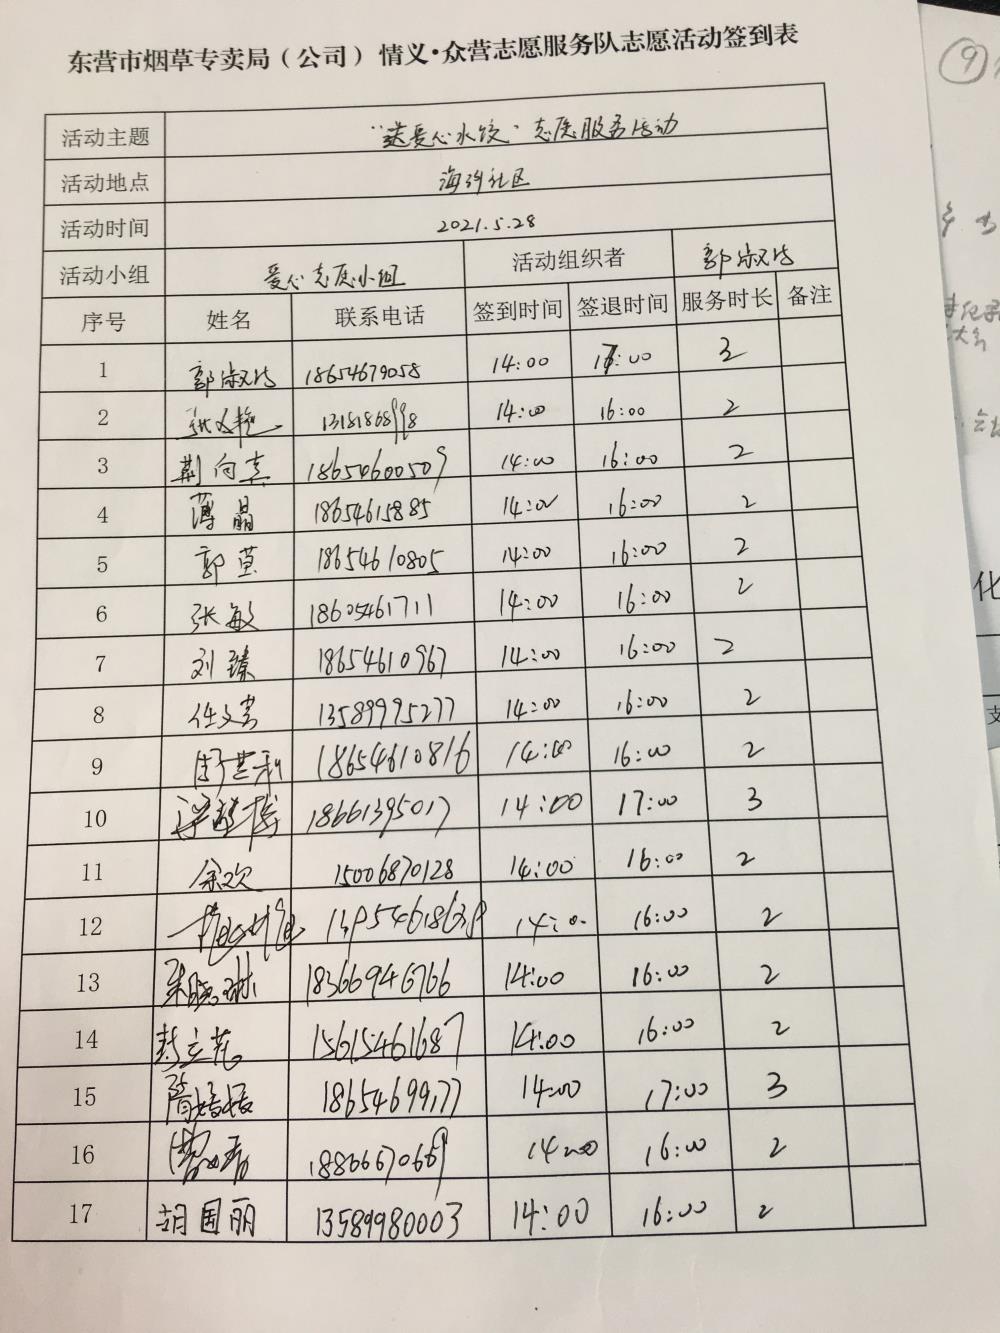 东营市烟草专卖局（公司）情义·众营志愿服务队志愿活动签到表
活动主题 “送爱心水饺”志愿服务活动
活动地点 海河社区
活动时间 2021.5.28
活动小组 爱心志愿小组 活动组织者 郭淑洁
序号 姓名 联系电话 签到时间 签退时间 服务时长 备注
1 郭淑洁 18654679058 14:00 17:00 3
2 张文艳 13181868998 14:00 16:00 2
3 荆向真 18654600509 14:00 16:00 2
4 薄晶 18654615885 14:00 16:00 2
5 郭莹 18654610805 14:00 16:00 2
6 张敏 18605461711 14:00 16:00 2
7 刘臻 18654610967 14:00 16:00 2
8 任文昌 13589995277 14:00 16:00 2
9 18654610816 14:00 16:00 2
10 18661395017 14:00 17:00 3
11 余欢 15006870128 14:00 16:00 2
12 14:00 16:00 2
13 朱晓琳 18366946766 14:00 16:00 2
14 封立花 15615461687 14:00 16:00 2
15 隋培振 18654699177 14:00 17:00 3
16 18866670669 14:00 16:00 2
17 胡国丽 13589980003 14:00 16:00 2
9
化
支